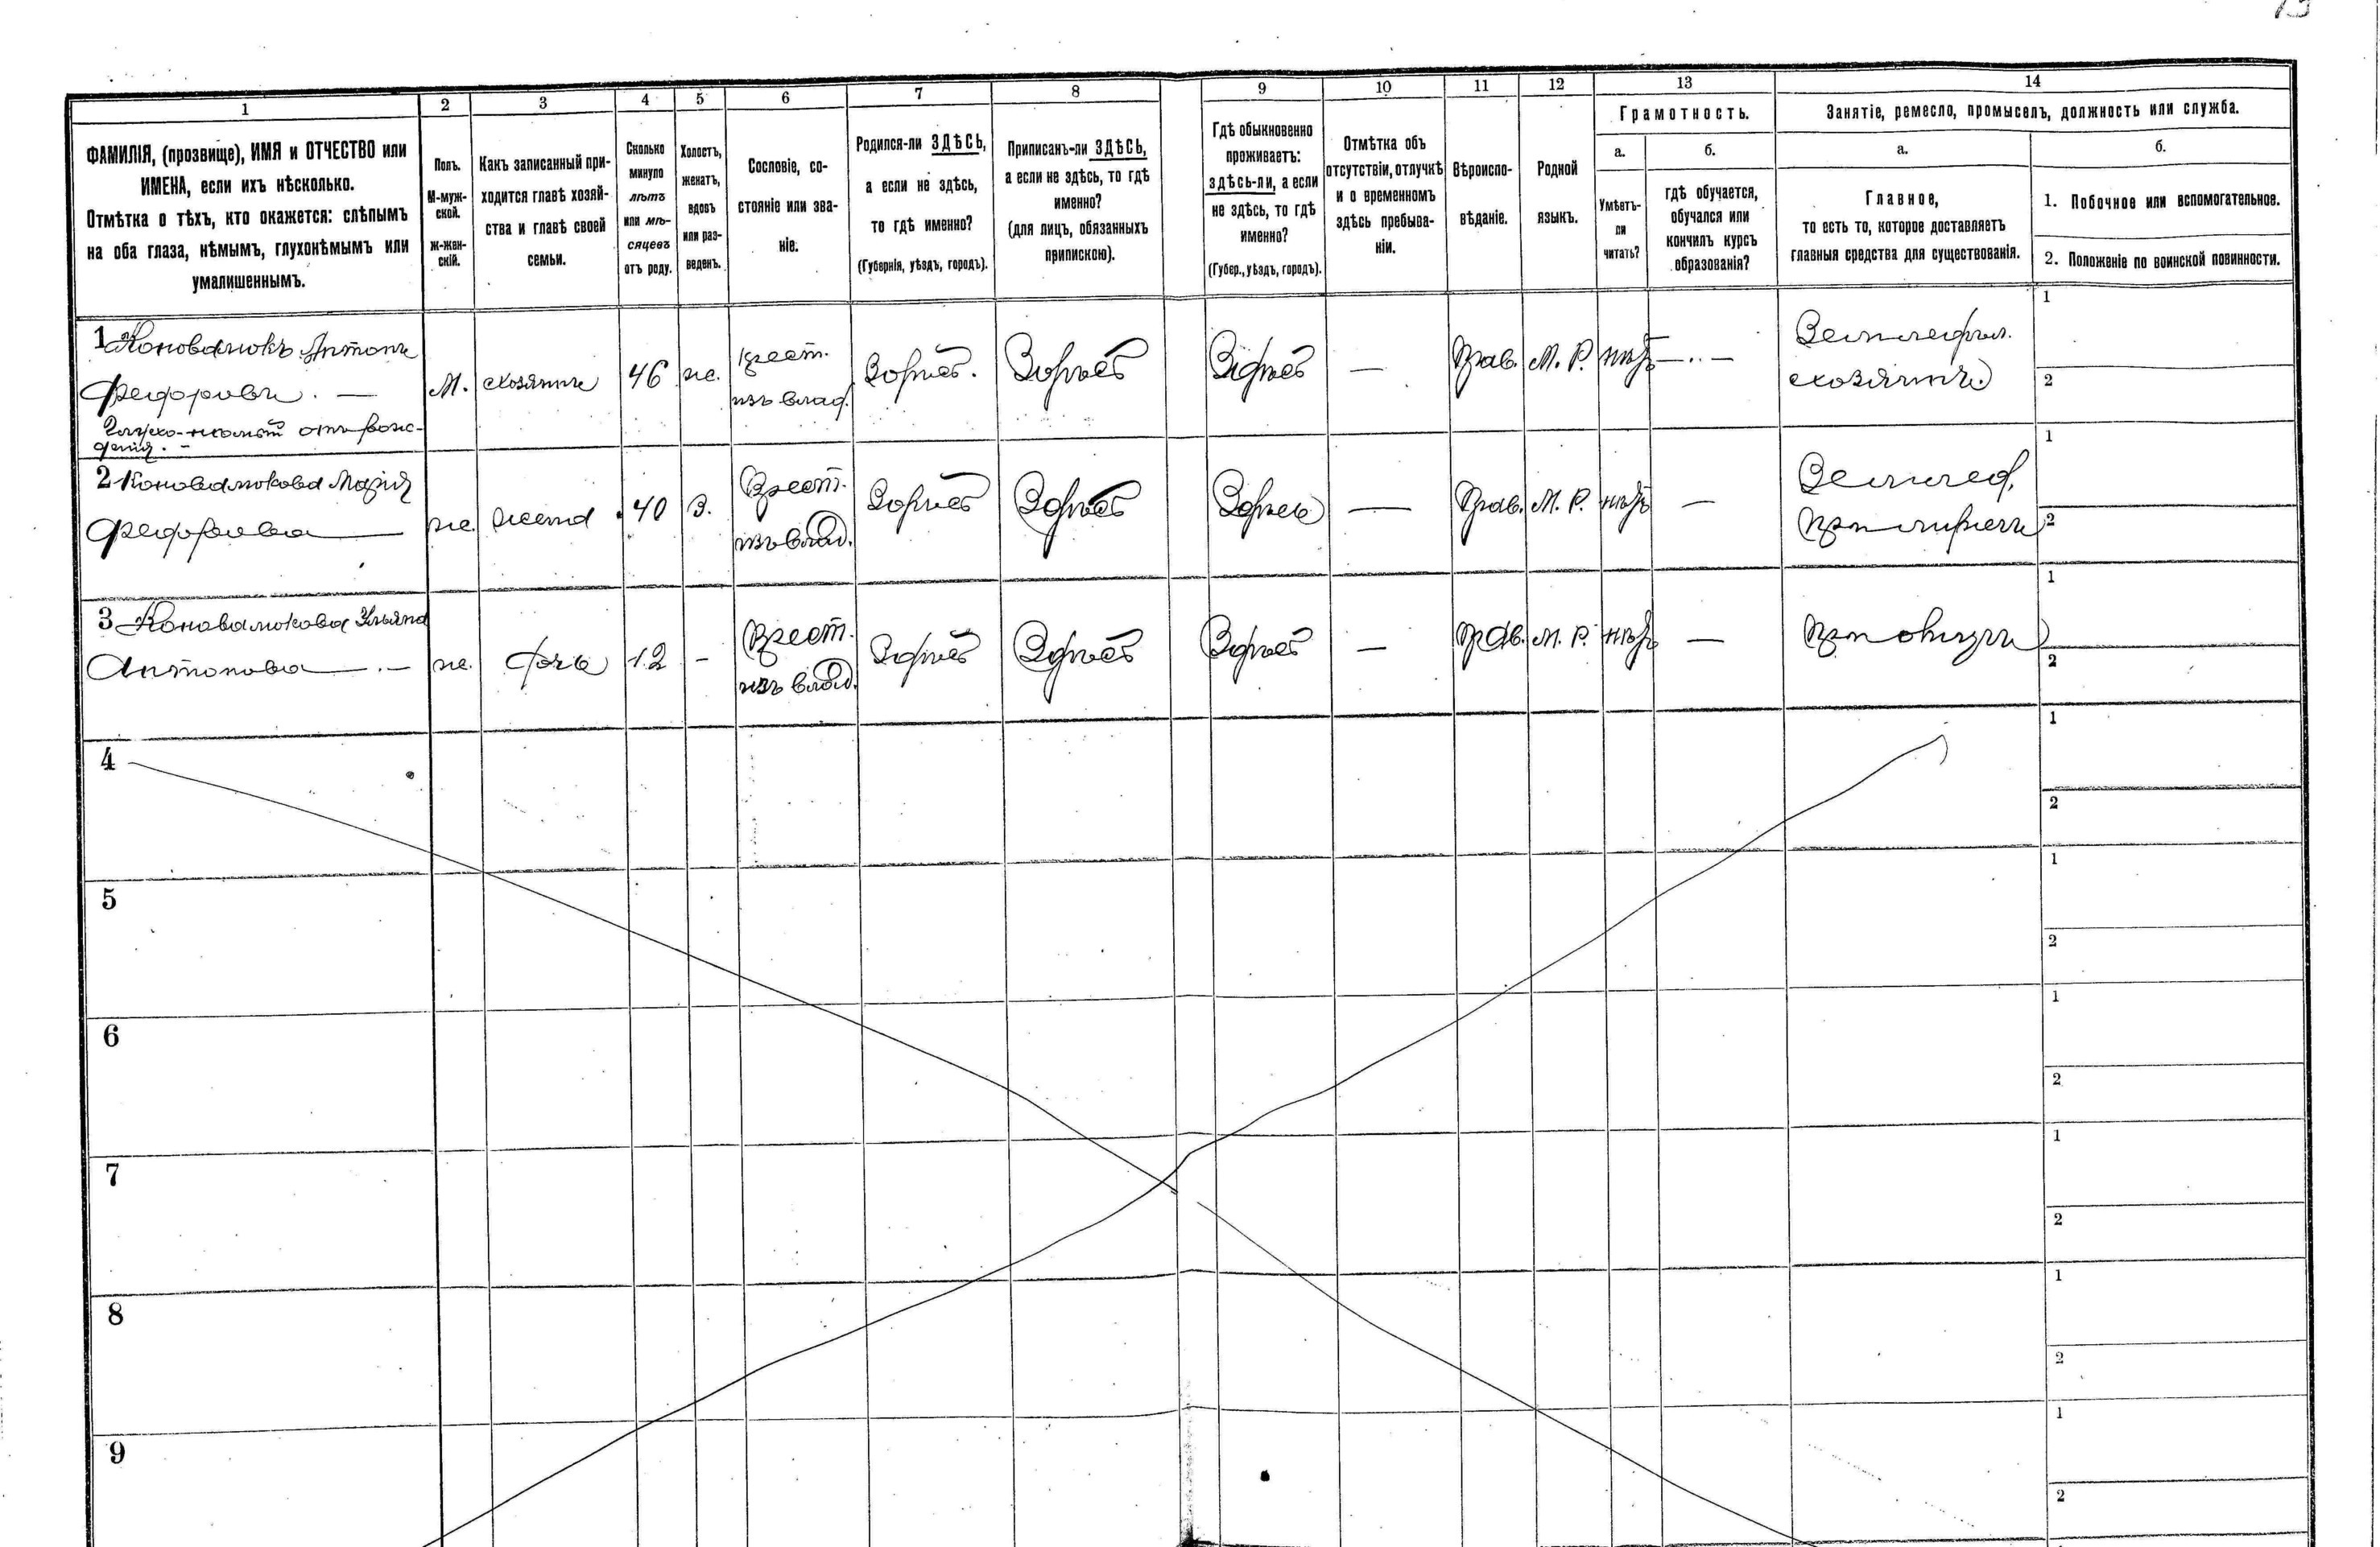 13
1
2
3
4
5
6
7
8
9
10
11
12
13
14
ФАМИЛІЯ, (прозвище), ИМЯ и ОТЧЕСТВО или
ИМЕНА, если ихъ нѣсколько.
Отмѣтка о тѣхъ, кто окажется: слѣпымъ
на оба глаза, нѣмымъ, глухонѣмымъ или
умалишеннымъ.
Полъ.
М-муж-
ской.
Ж-жен-
скій.
Какъ записанный при-
ходится главѣ хозяй-
ства и главѣ своей
семьи.
Сколько
минуло
лѣтъ
или мѣ-
сяцевъ
отъ роду.
Холостъ,
женатъ,
вдовъ
или раз-
веденъ.
Сословіе, со-
стояніе или зва-
ніе.
Родился-ли ЗДѢСЬ,
а если не здѣсь,
то гдѣ именно?
(Губернія, уѣздъ, городъ).
Приписанъ-ли ЗДѢСЬ,
а если не здѣсь, то гдѣ
именно?
(для лицъ, обязанныхъ
припискою).
Гдѣ обыкновенно
проживаетъ:
здѣсь-ли, а если
не здѣсь, то гдѣ
именно?
(Губер., уѣздъ, городъ).
Отмѣтка объ
отсутствіи, отлучкѣ
и о временномъ
здѣсь пребыва-
ніи.
Вѣроиспо-
вѣданіе.
Родной
языкъ.
Грамотность.
а.
Умѣетъ-
ли
читать?
б.
гдѣ обучается,
обучался или
кончилъ курсъ
образованія?
Занятіе, ремесло, промыселъ, должность или служба.
а.
Главное,
то есть то, которое доставляетъ
главныя средства для существованія.
б.
1. Побочное или вспомогательное.
2. Положеніе по воинской повинности.
1 Коновалюкъ Антонъ
Федоровъ. —
Глухо-нѣмой отъ рож-
денія. —
М.
хозяинъ
46
ж.
крест.
изъ влад.
Здѣсь.
Здѣсь
Здѣсь
—
Прав.
М. Р.
нѣтъ
—
Земледѣл.
хозяинъ.
1
2
2 Коновалюкова Марія
Федорова —
ж.
жена
40
З.
Крест.
изъ влад.
Здѣсь
Здѣсь
Здѣсь
—
Прав.
М. Р.
нѣтъ
—
Землед.
при мужѣ
1
2
3 Коновалюкова Ульяна
Антонова —
ж.
дочь
12
-
Крест.
изъ влад.
Здѣсь
Здѣсь
Здѣсь
—
Прав.
М. Р.
нѣтъ
—
при отцѣ
1
2
4
1
2
5
1
2
6
1
2
7
1
2
8
1
2
9
1
2